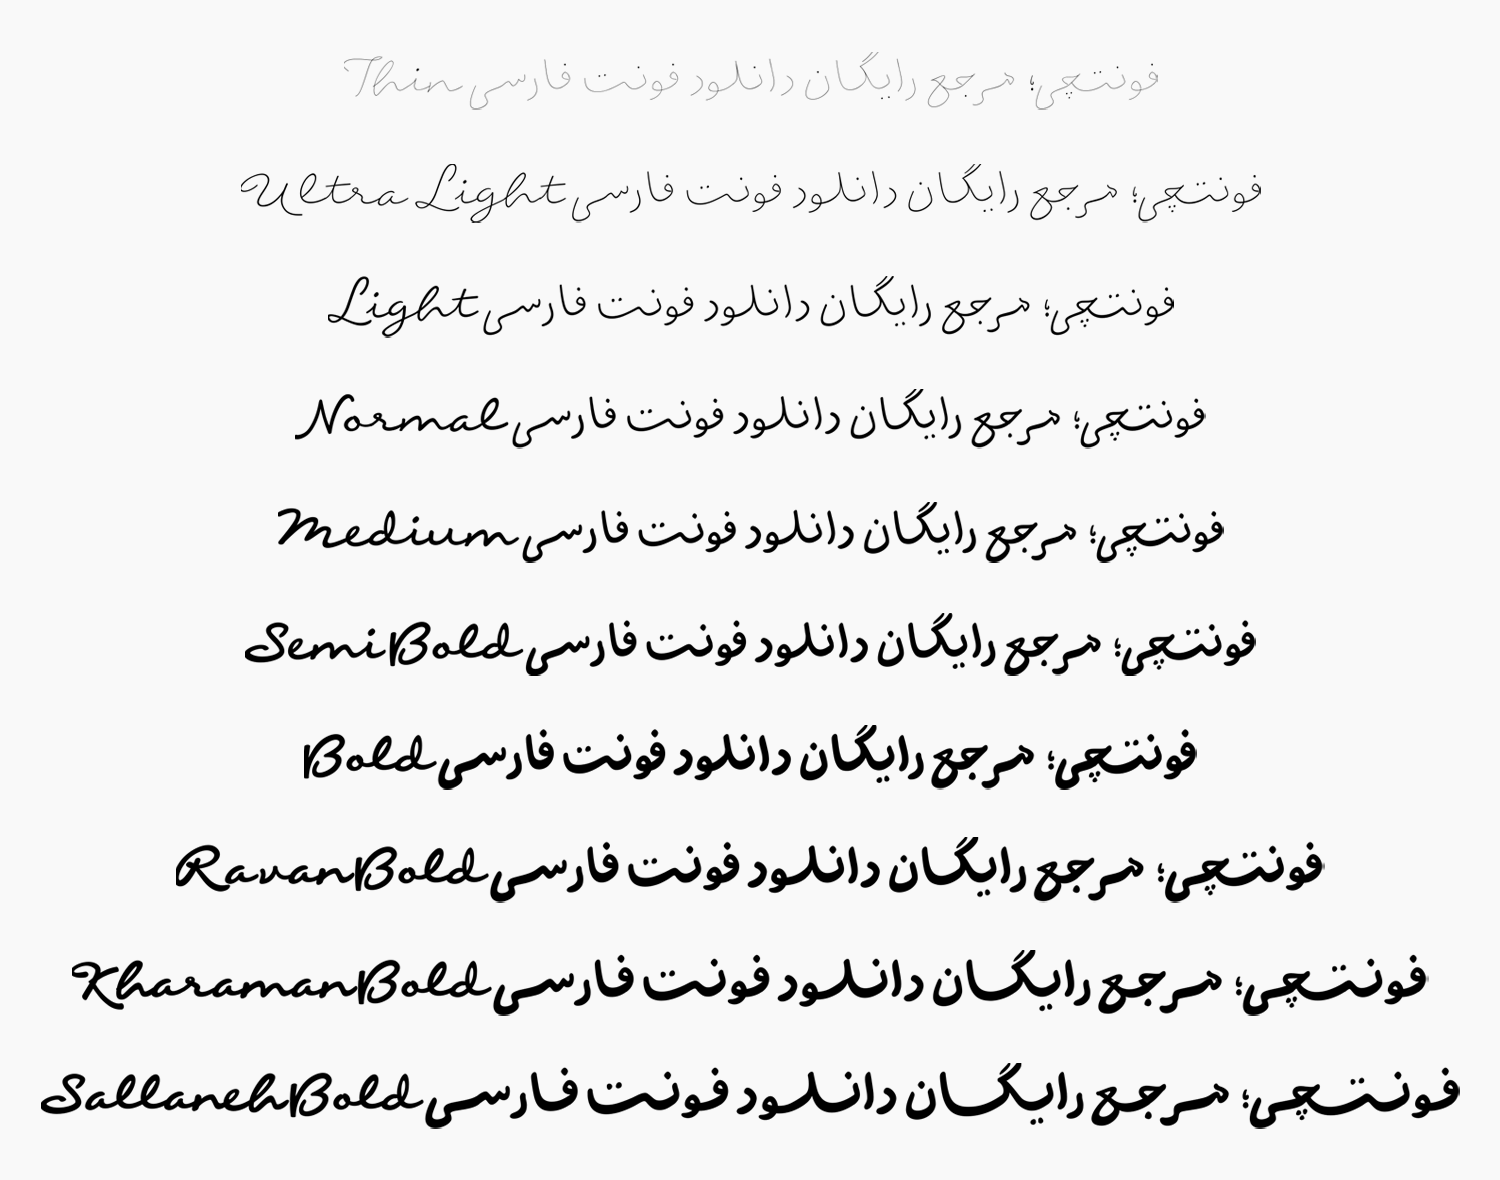 فونتچی؛ مرجع رایگان دانلود فونت فارسی Thin
فونتچی؛ مرجع رایگان دانلود فونت فارسی Ultra Light
فونتچی؛ مرجع رایگان دانلود فونت فارسی Light
فونتچی؛ مرجع رایگان دانلود فونت فارسی Normal
فونتچی؛ مرجع رایگان دانلود فونت فارسی Medium
فونتچی؛ مرجع رایگان دانلود فونت فارسی SemiBold
فونتچی؛ مرجع رایگان دانلود فونت فارسی Bold
فونتچی؛ مرجع رایگان دانلود فونت فارسی RavanBold
فونتچی؛ مرجع رایگان دانلود فونت فارسی KharamanBold
فونتچی؛ مرجع رایگان دانلود فونت فارسی SallanehBold